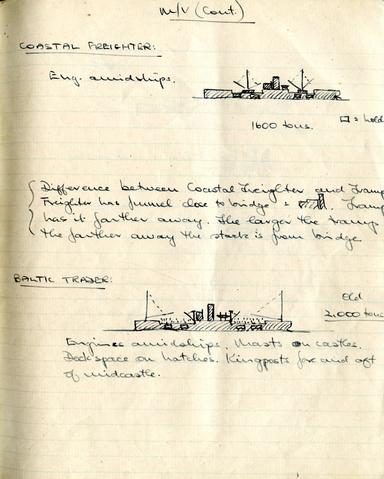 M/V (Cont.)
COASTAL FREIGHTER:
Eng. amidships.
1600 tons.
= hold
Difference between Coastal Freighter and Tramp
Freighter has funnel close to bridge = . Tramp
has it farther away. The larger the tramp
the farther away the stack is from bridge
BALTIC TRADER:
Old
2.000 tons
Engines amidships. Masts on castles.
Deck space on hatches. Kingposts fore and aft
of midcastle.